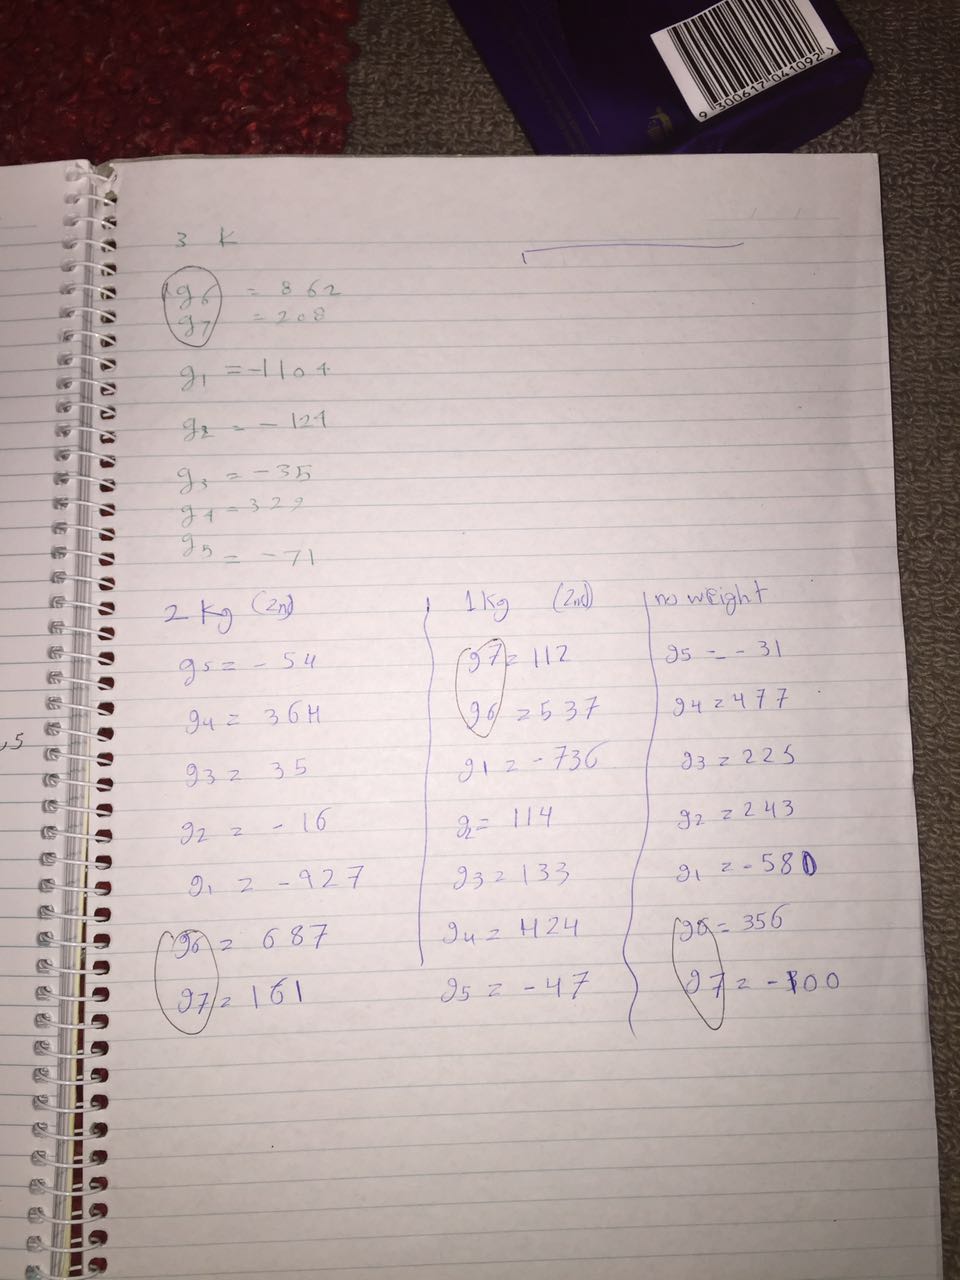 9 300617 041092 >
3 K
g6 = 862
g7 = 208
g1 = -1104
g2 = -124
g3 = -35
g4 = 329
g5 = -71
2 kg (2nd)
g5 = - 54
g4 = 364
g3 = 35
g2 = - 16
g1 = -927
g6 = 687
g7 = 161
1 kg (2nd)
g7 = 112
g6 = 537
g1 = -736
g2 = 114
g3 = 133
g4 = 424
g5 = -47
no weight
g5 = - 31
g4 = 477
g3 = 225
g2 = 243
g1 = -580
g6 = 356
g7 = -100